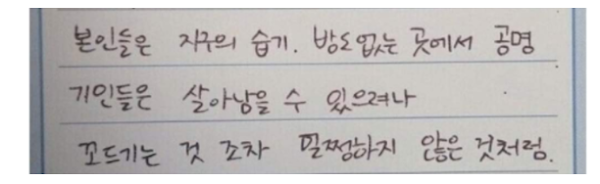 본인들은 지구의 습기. 밤도 없는 곳에서 공명
기인들은 살아남을 수 있으려나
꼬드기는 것 조차 멀쩡하지 않은 것처럼.